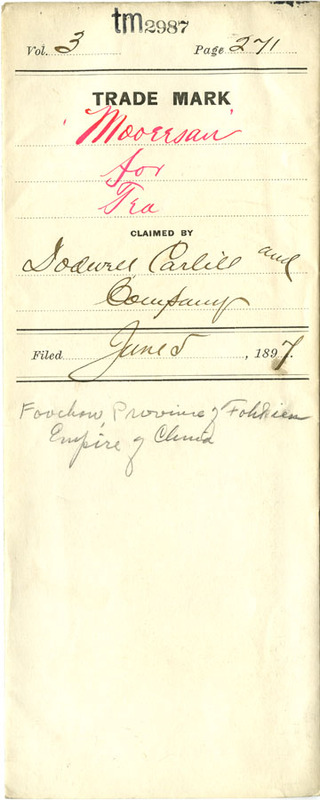 tm2987
Vol. 3 Page 271
TRADE MARK
"Mooersan"
for
Tea
CLAIMED BY
Dodwell Carlill and
Company
Filed June 5, 1897.
Foochow, Province of Fohkien
Empire of China